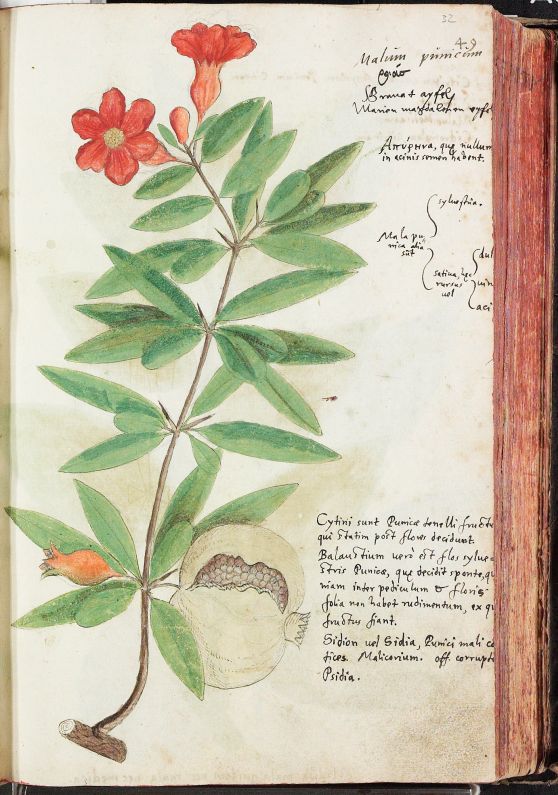 32
49
Malum punicum
Granat apfel
Marien magdalenen
Ἀπύρηνα, quę nullum
in acinis semen habent.
syluestria.
Mala pu
nica alia
sūt
satiua, hęc
rursus
uel
dul
uin
aci
Cytini sunt Punicæ tenelli fructu
qui statim post flores decidunt
Balaustium uerò est flos sylue
stris Punicæ, quę decidit sponte, q
niam inter pediculum & floris
folia non habet rudimentum, ex q
fructus fiant.
Sidion uel Sidia, Punici mali co
tices. Malicorium. off. corrupte
Psidia.